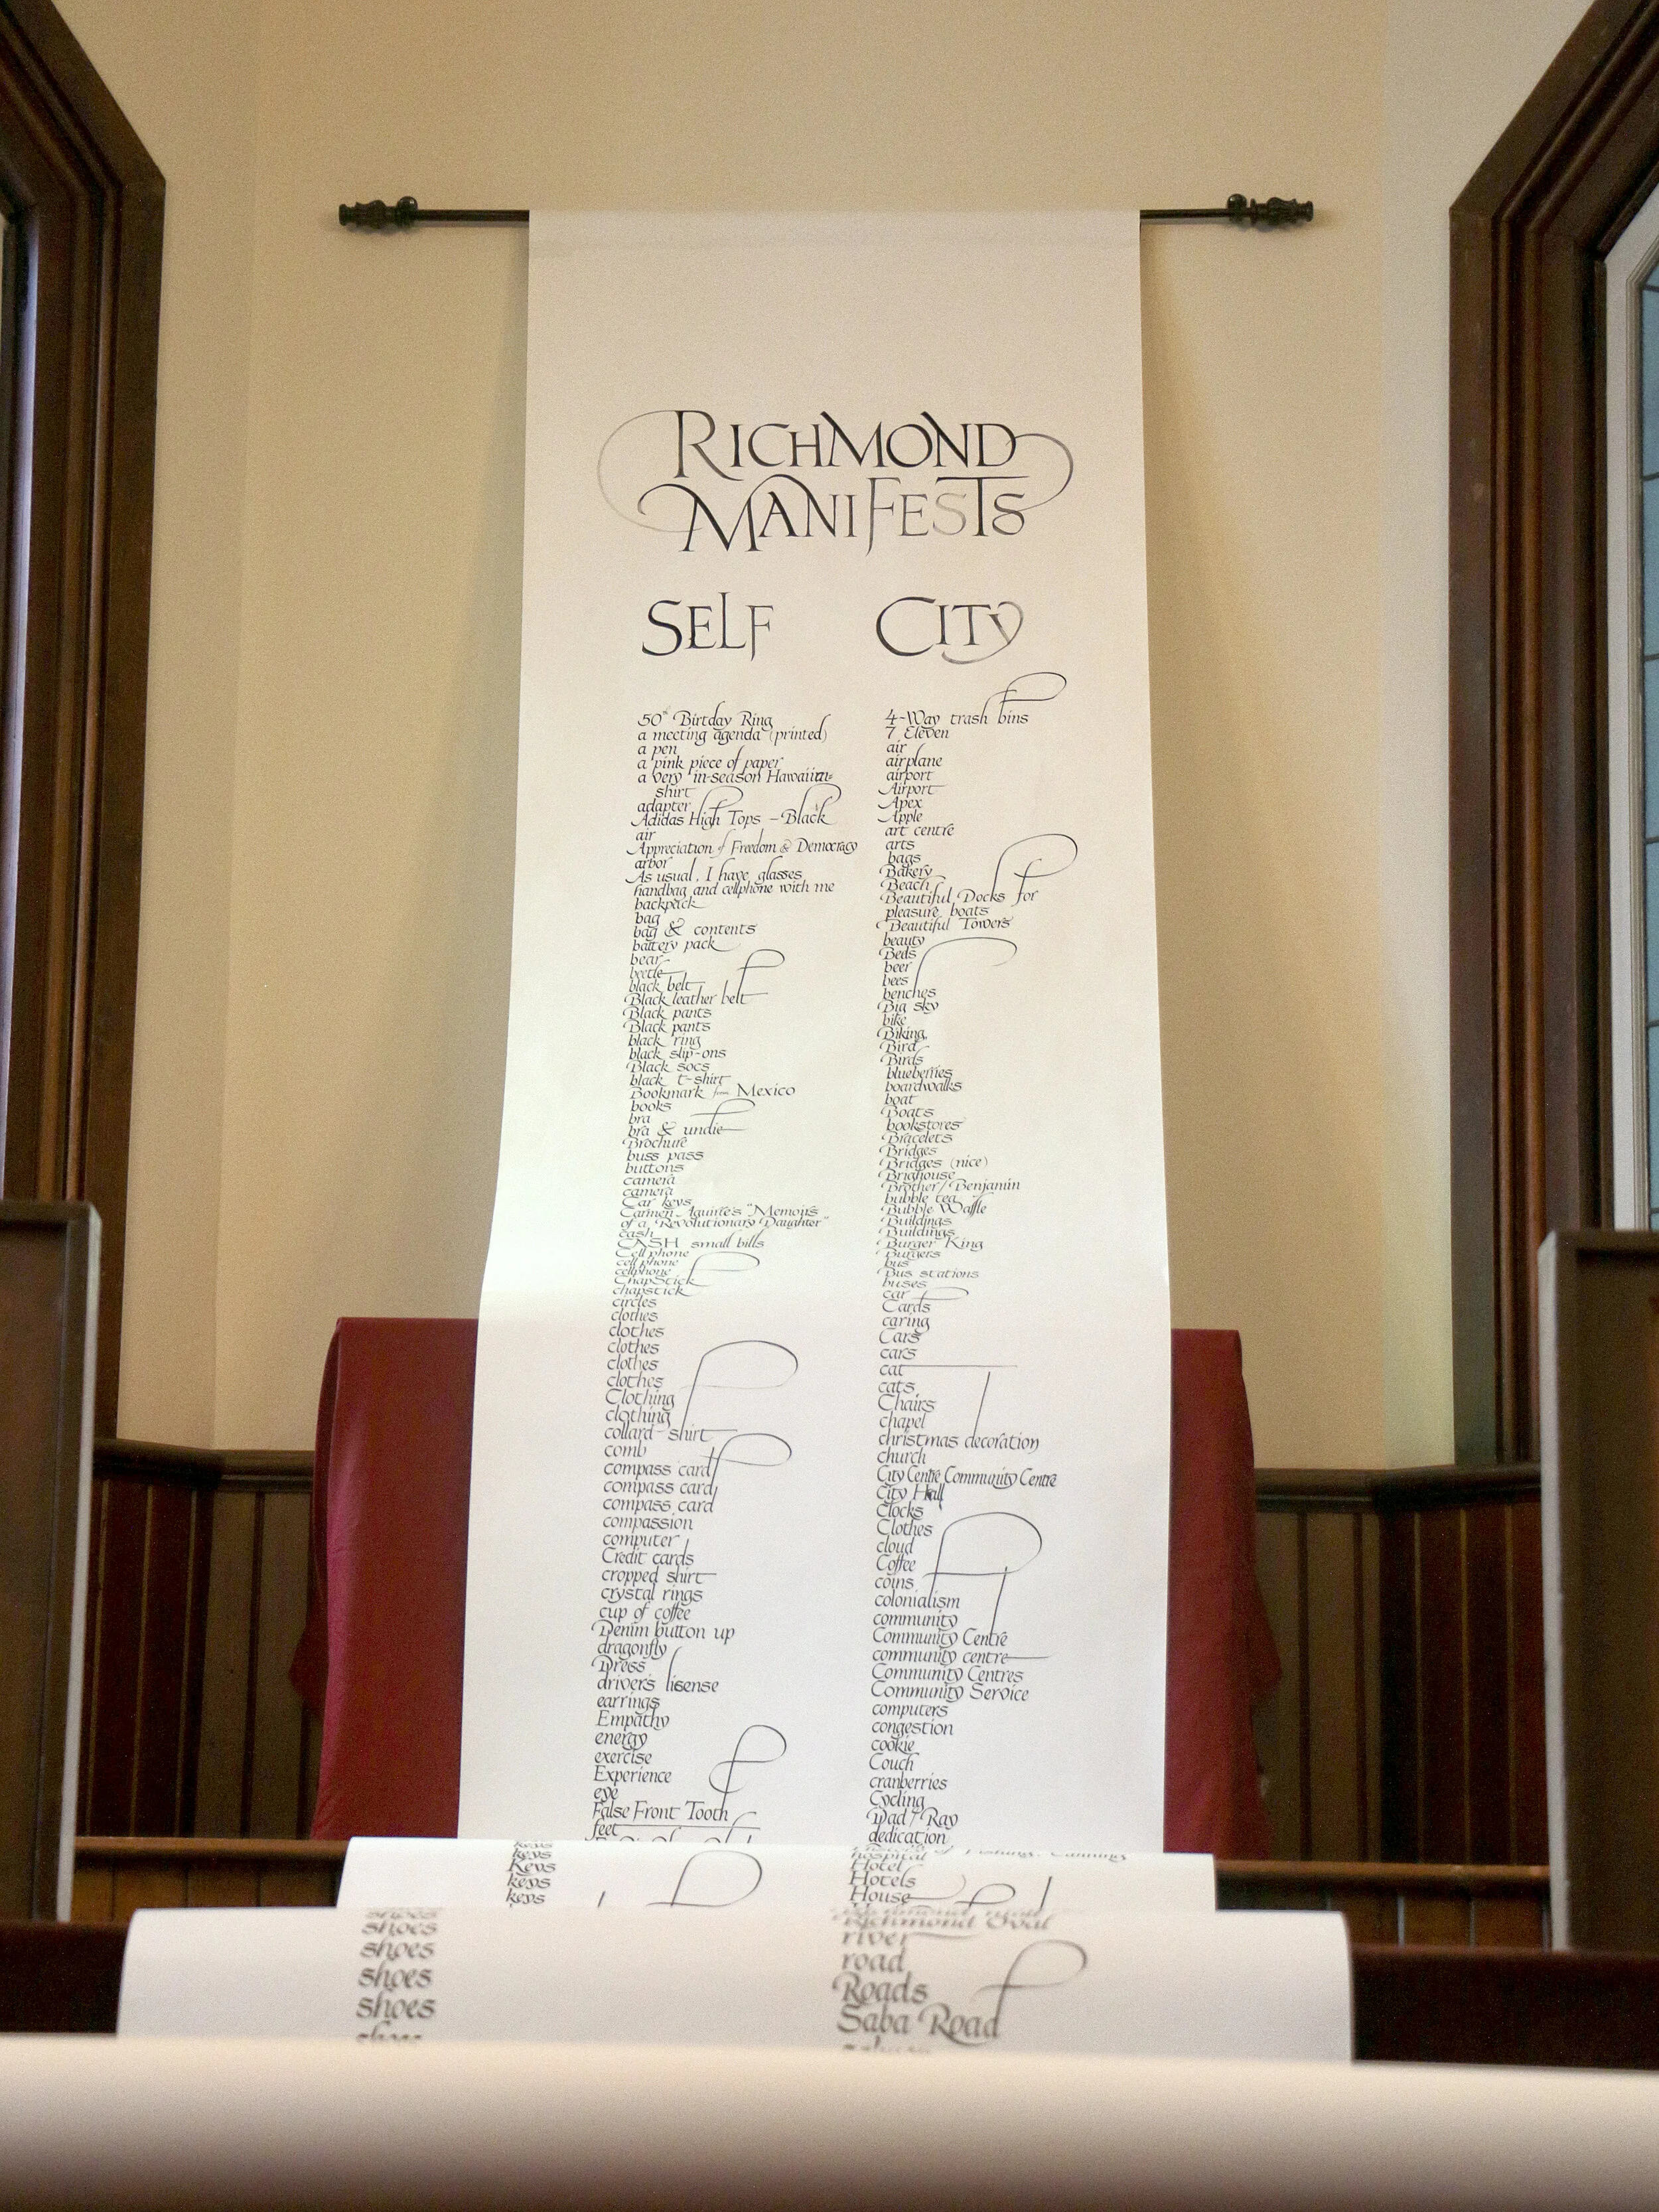 RICHMOND
MANIFESTS
SELF
50th Birtday Ring
a meeting agenda (printed)
a pen
a pink piece of paper
a very in-season Hawaiian
shirt
adapter
Adidas High Tops – Black
air
Appreciation of Freedom & Democracy
arbor
As usual, I have glasses
handbag and cellphone with me
backpack
bag
bag & contents
battery pack
bear
beetle
black belt
Black leather belt
Black pants
Black pants
black ring
black slip-ons
Black socs
black t-shirt
Bookmark from Mexico
books
bra
bra & undie
Brochure
buss pass
buttons
camera
camera
Car keys
Carmen Aguirre's "Memoirs
of a Revolutionary Daughter"
cash
CASH small bills
Cell phone
cell phone
cellphone
ChapStick
chapstick
circles
clothes
clothes
clothes
clothes
clothes
Clothing
clothing
collard shirt
comb
compass card
compass card
compass card
compassion
computer
Credit cards
cropped shirt
crystal rings
cup of coffee
Denim button up
dragonfly
Dress
drivers lisense
earrings
Empathy
energy
exercise
Experience
eye
False Front Tooth
feet
CITY
4-Way trash bins
7 Eleven
air
airplane
airport
Airport
Apex
Apple
art centre
arts
bags
Bakery
Beach
Beautiful Docks for
pleasure boats
Beautiful Towers
beauty
Beds
beer
bees
benches
Big sky
bike
Biking
Bird
Birds
blueberries
boardwalks
boat
Boats
bookstores
Bracelets
Bridges
Bridges (nice)
Brighouse
Brother / Benjamin
bubble tea
Bubble Waffle
Buildings
Buildings
Burger King
Burgers
bus
Bus stations
buses
car
Cards
caring
Cars
cars
cat
cats
Chairs
chapel
christmas decoration
church
City Centre Community Centre
City Hall
Clocks
Clothes
cloud
Coffee
coins
colonialism
community
Community Centre
community centre
Community Centres
Community Service
computers
congestion
cookie
Couch
cranberries
Cycling
Dad / Ray
dedication
keys
keys
Keys
keys
keys
hospital
Hotel
Hotels
House
shoes
shoes
shoes
shoes
shoes
Richmond Oval
river
road
Roads
Saba Road